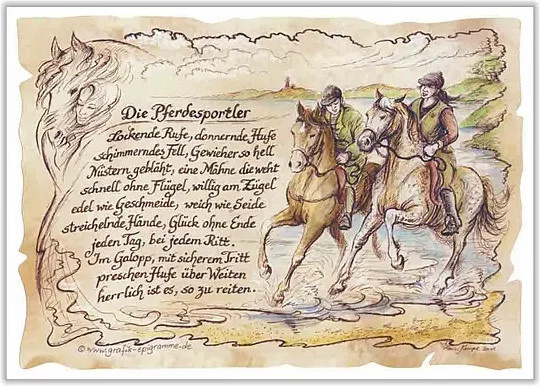 Die Pferdesportler
Lockende Rufe, donnernde Hufe
schimmerndes Fell, Gewieher so hell
Nüstern gebläht, eine Mähne die weht
schnell ohne Flügel, willig am Zügel
edel wie Geschmeide, weich wie Seide
streichelnde Hände, Glück ohne Ende
jeden Tag, bei jedem Ritt.
Im Galopp, mit sicherem Tritt
preschen Hufe über Weiten
herrlich ist es, so zu reiten.
© www.grafik-epigramme.de